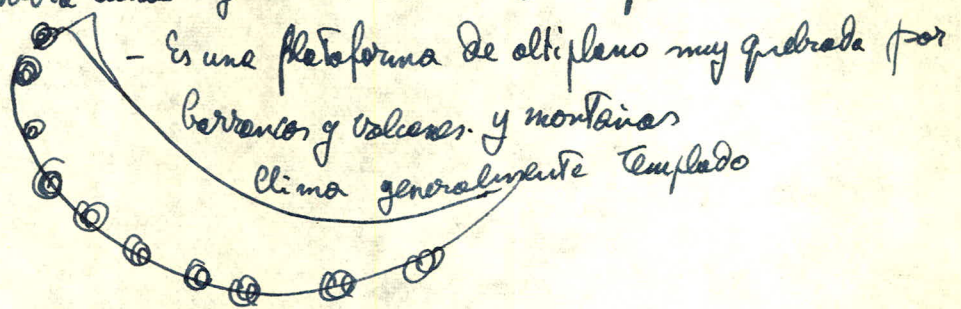 - Es una plataforma de altiplano muy quebrada por
barrancos y volcanes. y montañas
Clima generalmente templado